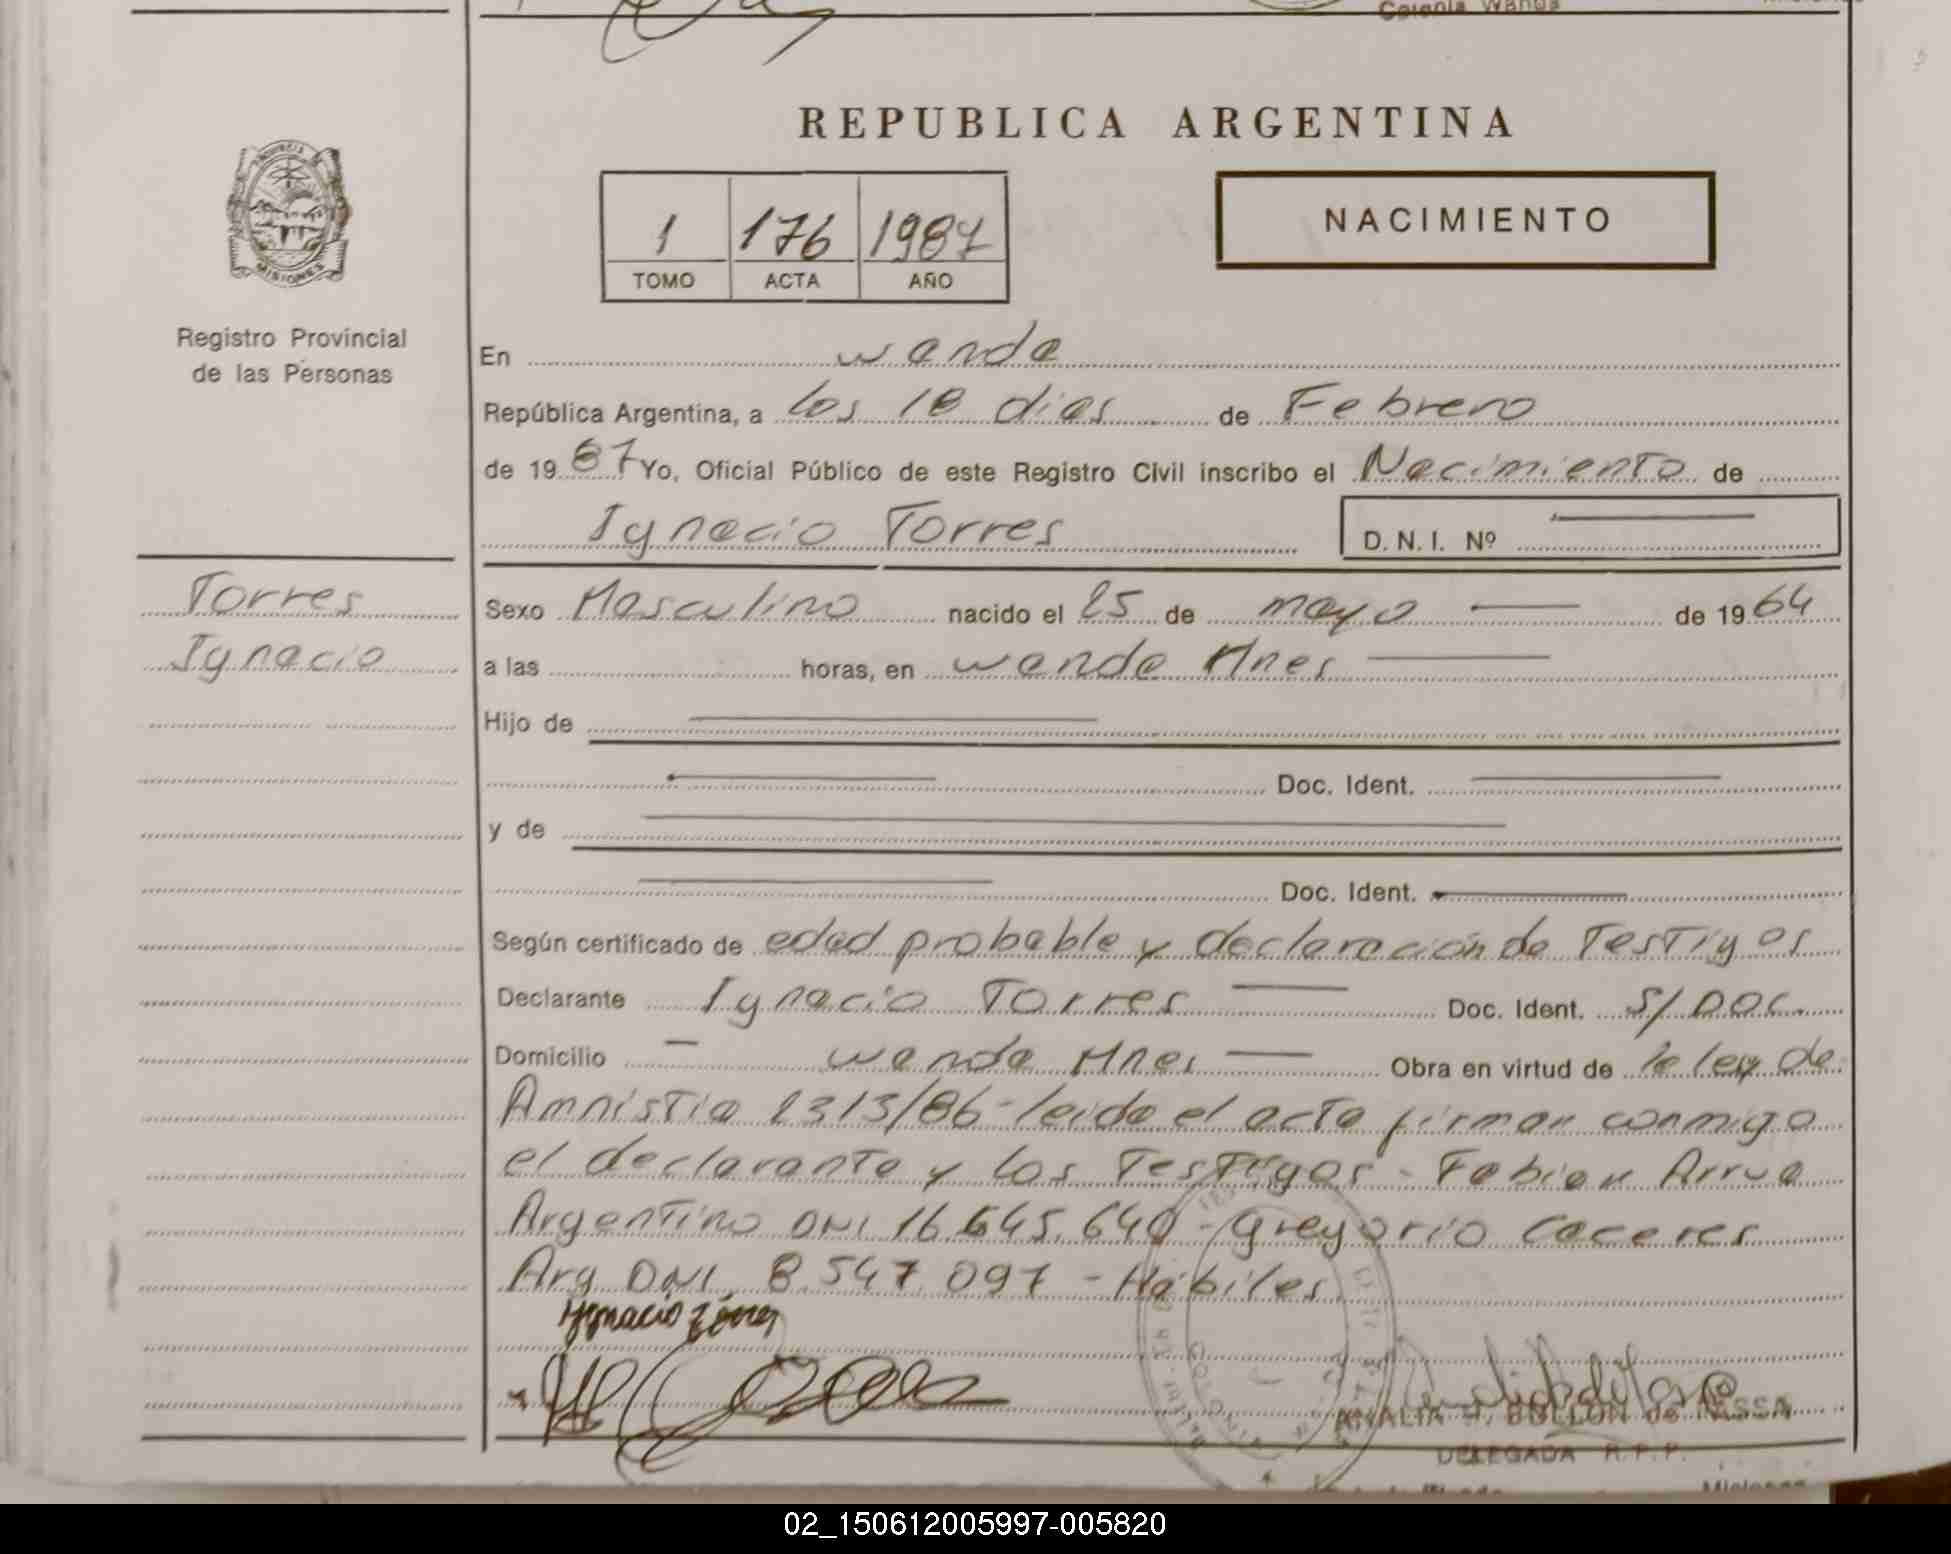 Colonia Wanda
REPUBLICA ARGENTINA
PROVINCIA DE
MISIONES
1 176 1987
TOMO ACTA AÑO
NACIMIENTO
Registro Provincial
de las Personas
En Wanda
República Argentina, a los 18 dias de Febrero
de 1987 Yo, Oficial Público de este Registro Civil inscribo el Nacimiento de
Ignacio Torres D.N.I. Nº
Torres
Ignacio
Sexo Masculino nacido el 25 de mayo de 1964
a las horas, en Wanda Mnes
Hijo de
Doc. Ident.
y de
Doc. Ident.
Según certificado de edad probable y declaración de Testigos
Declarante Ignacio Torres Doc. Ident. S/Doc.
Domicilio Wanda Mnes Obra en virtud de la ley de
Amnistia 2313/86 - leida el acta firman conmigo
el declarante y los Testigos - Fabian Arrua
Argentino DNI 16.645.640 - Gregorio Caceres
Arg DNI 8.547.097 - Hábiles
Ygnacio Torres
ANALIA H. BULLON de MASSA
DELEGADA R.P.P.
Misiones
02_150612005997-005820